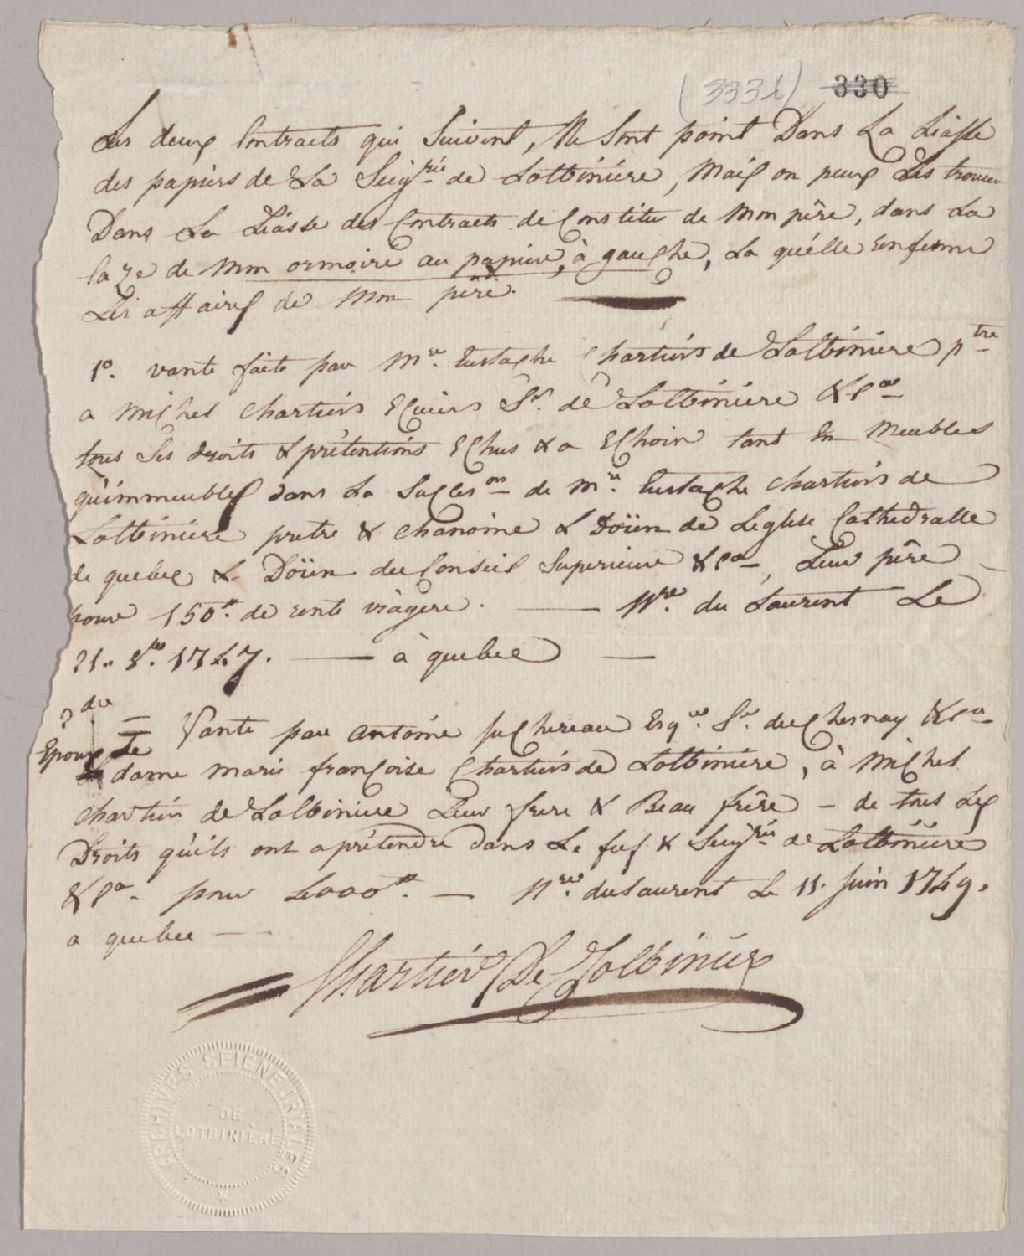 (3331) 330
Les deux Contracts qui Suivent, Ne Sont point Dans La Liasse
des papiers de La Seig.rie de Lotbiniére, Mais on peux Les trouver
Dans La Liasse des Contracts de Constitu de Mon pêre, dans La
la 2e de Mon ormoire au papier, à gauche, La quélle renferme
Les affaires de Mon pére.
1º. vante faite par Mre. Eustache Chartiers de Lotbiniere ptre
a Michel Chartiers Ecuiers Sr. de Lotbiniére &ca
tous Ses droits & prétentions Echus & a Echoir tant En Meubles
qu'immeubles dans La Succes.on de Mre. Eustache Chartiers de
Lotbiniére pretre & Chanoine & Doÿen de Leglise Cathedralle
de quebec & Doÿen du Conseil Superieure &ca, Leur pêre
pour 150tt. de rente viagere. — Nre. du Laurent Le
21.. 8.bre 1747. — à quebec —
2de = Vante par Antoine Juchereau Esqre. Sr. duChesnay &ca
Epoux de
dame Marie françoise Chartiers de Lotbiniére, à Michel
Chartier de Lotbiniere Leur frere & Beau frêre — de tous Les
Droits qu'ils ont a prétendre dans Le fief & Seig.rie de Lotbiniére
&ca. pour 4000tt. — Nre. duLaurent Le 11. Juin 1749.
a quebec —
Chartier De Lotbiniére
ARCHIVES SEIGNEURIALES
DE
LOTBINIÈRE